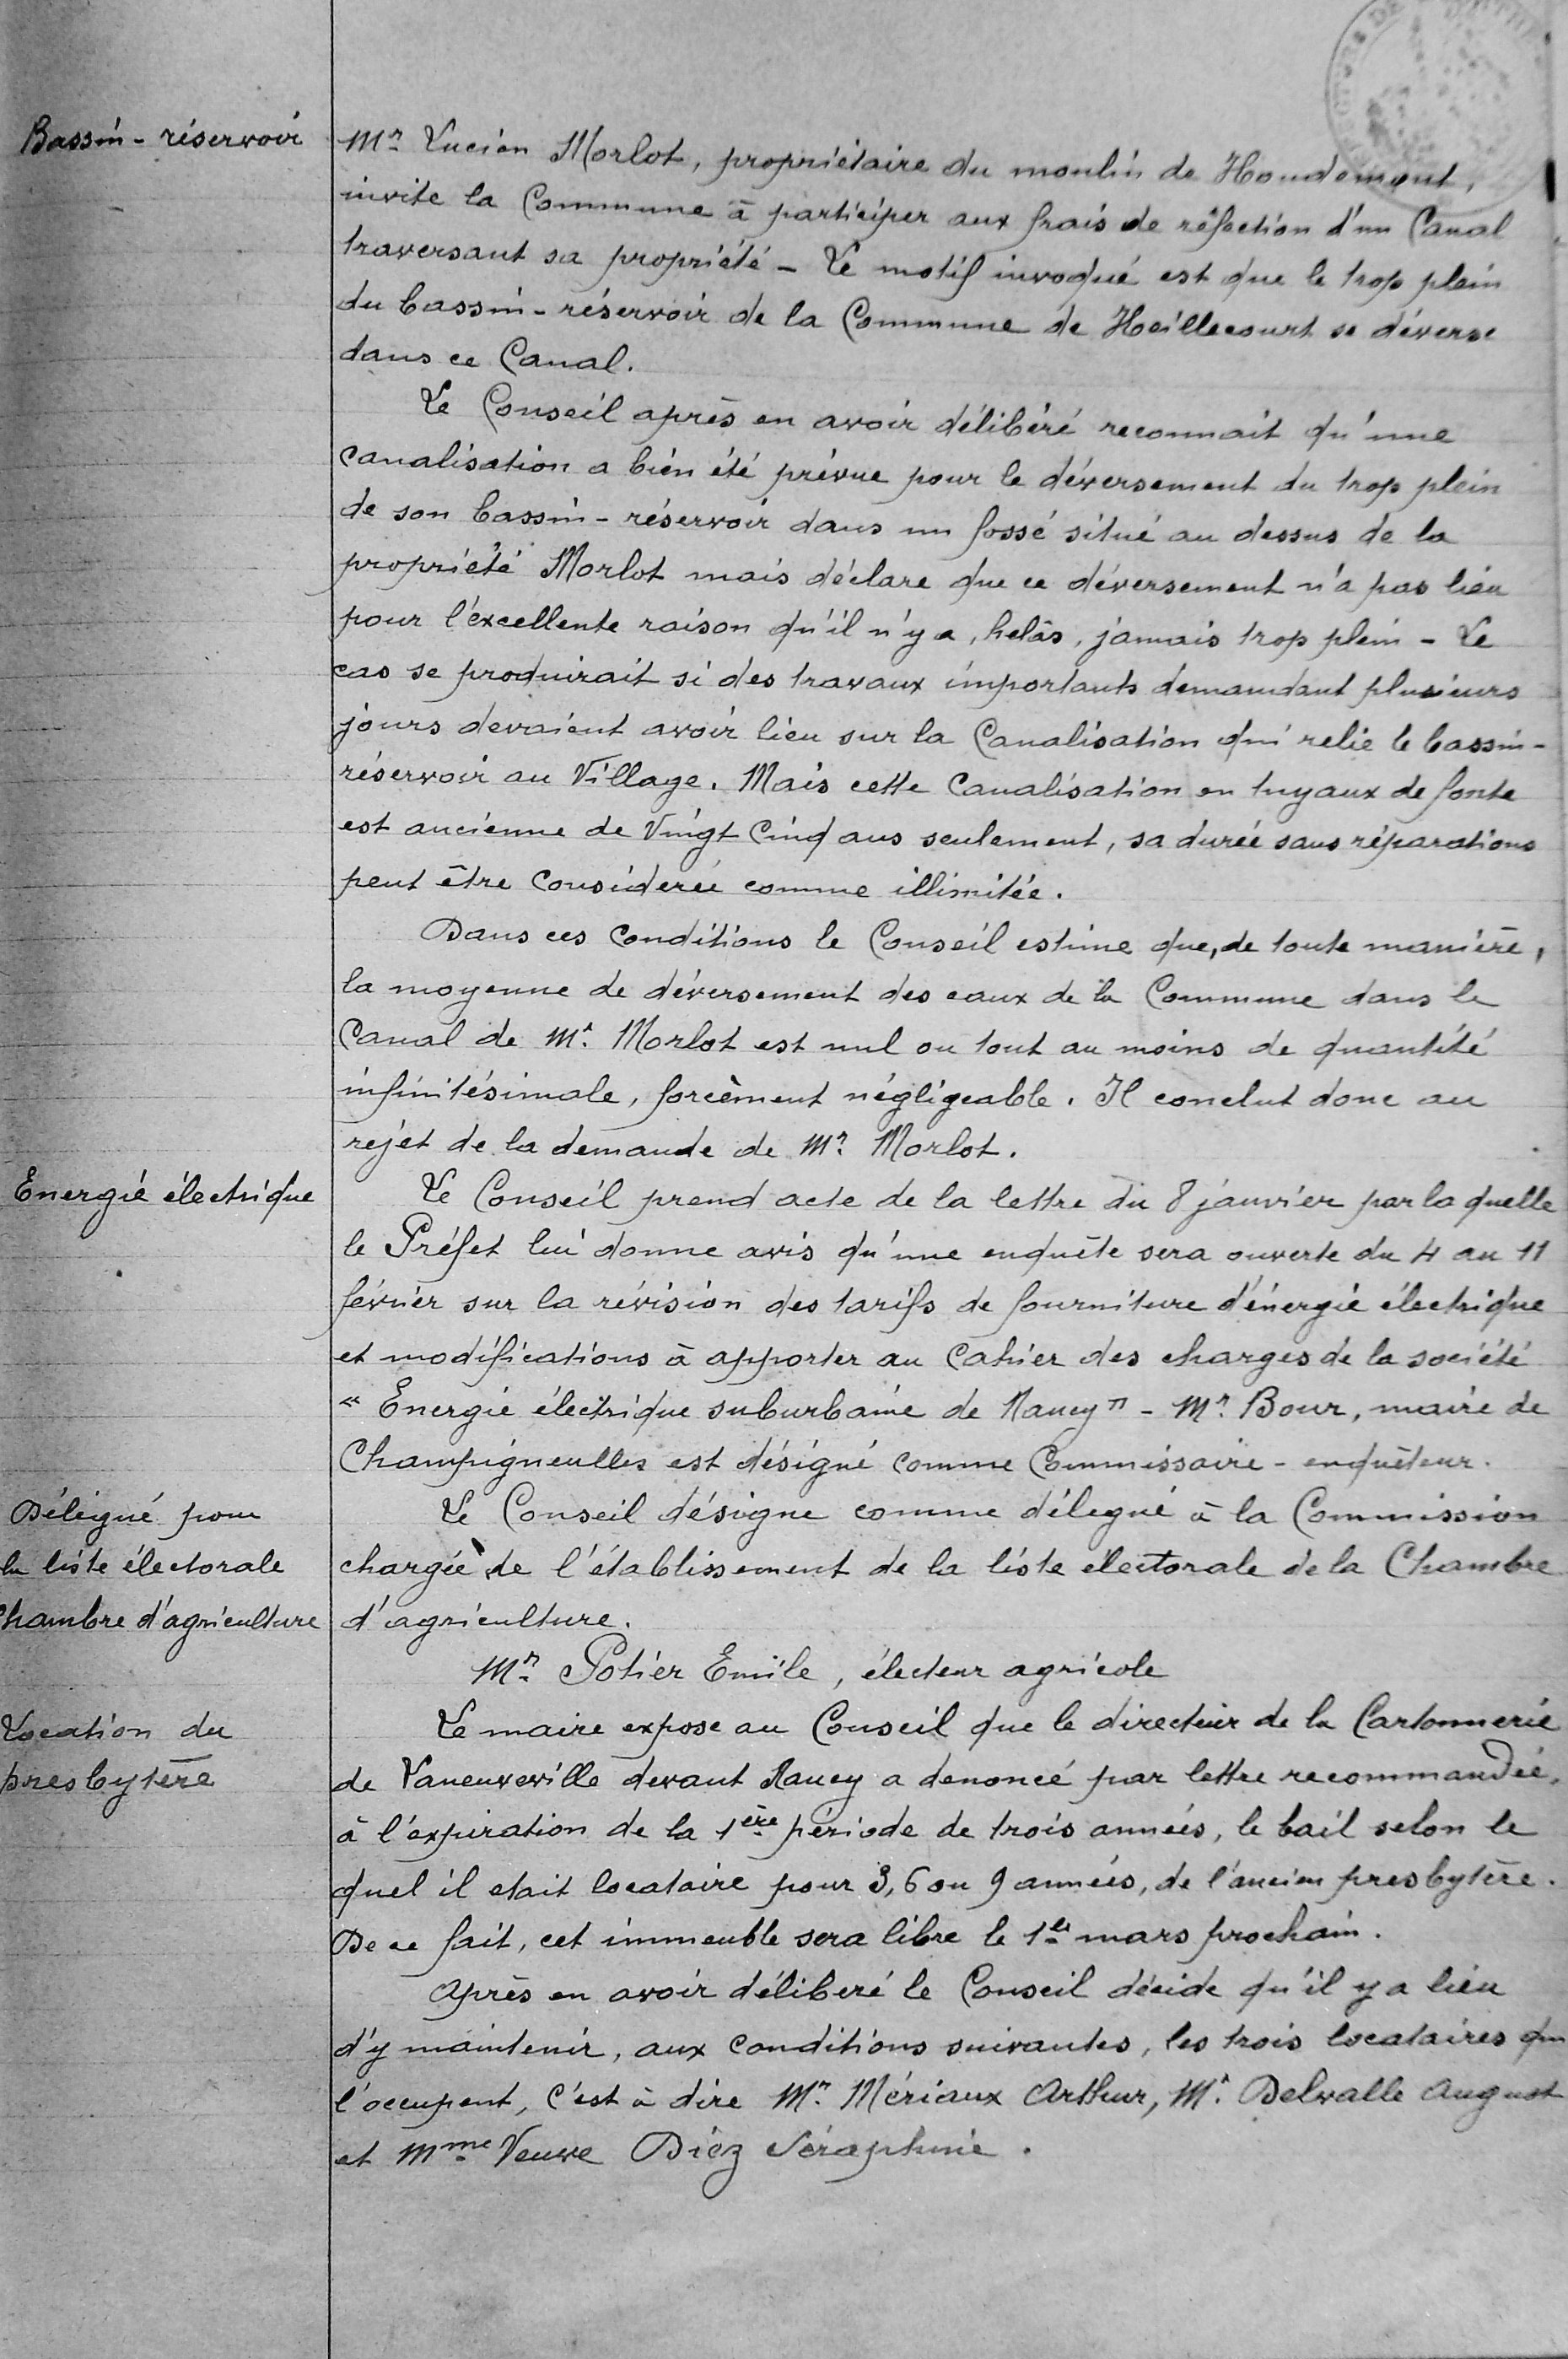 Bassin-réservoir
Mr Lucien Morlot, propriétaire du moulin de Houdemont,
invite la Commune à participer aux frais de réfection d'un Canal
traversant sa propriété - Le motif invoqué est que le trop plein
du bassin-réservoir de la Commune de Heillecourt se déverse
dans ce Canal.
Le Conseil après en avoir délibéré reconnait qu'une
canalisation a bien été prévue pour le déversement du trop plein
de son bassin-réservoir dans un fossé situé au dessus de la
propriété Morlot mais déclare que ce déversement n'a pas lieu
pour l'excellente raison qu'il n'y a, helàs, jamais trop plein - Le
cas se produirait si des travaux importants demandant plusieurs
jours devraient avoir lieu sur la Canalisation qui relie le bassin-
réservoir au Village. Mais cette Canalisation en tuyaux de fonte
est ancienne de Vingt Cinq ans seulement, sa durée sans réparations
peut être Considerée comme illimitée.
Dans ces Conditions le Conseil estime que, de toute manière,
la moyenne de déversement des eaux de la Commune dans le
Canal de Mr. Morlot est nul ou tout au moins de quantité
infinitésimale, forcèment négligeable. Il conclut donc au
rejet de la demande de Mr. Morlot.
Energie électrique
Le Conseil prend acte de la lettre du 8 janvier par la quelle
le Préfet lui donne avis qu'une enquête sera ouverte du 4 au 11
février sur la révision des tarifs de fourniture d'énergie électrique
et modifications à apporter au Cahier des charges de la société
"Energie électrique suburbaine de Nancy" - Mr. Bour, maire de
Champigneulles est désigné comme Commissaire-enquêteur.
Délégué pour
la liste électorale
Chambre d'agriculture
Le Conseil désigne comme délegué à la Commission
chargée de l'établissement de la liste électorale de la Chambre
d'agriculture.
Mr Potier Emile, électeur agricole
Location du
presbytère
Le maire expose au Conseil que le directeur de la Cartonnerie
de Laneuveville devant Nancy a denoncé par lettre recommandée,
à l'expiration de la 1ère période de trois années, le bail selon le
quel il etait locataire pour 3, 6 ou 9 années, de l'ancien presbytère.
De ce fait, cet immeuble sera libre le 1er mars prochain.
Après en avoir déliberé le Conseil décide qu'il y a lieu
d'y maintenir, aux conditions suivantes, les trois locataires qui
l'occupent, C'est à dire Mr. Mériaux Arthur, Mr. Delvalle August
et Mme Veuve Diez Séraphine.